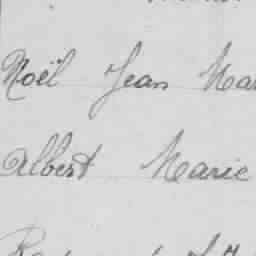 Noël Jean Mar
Albert Marie